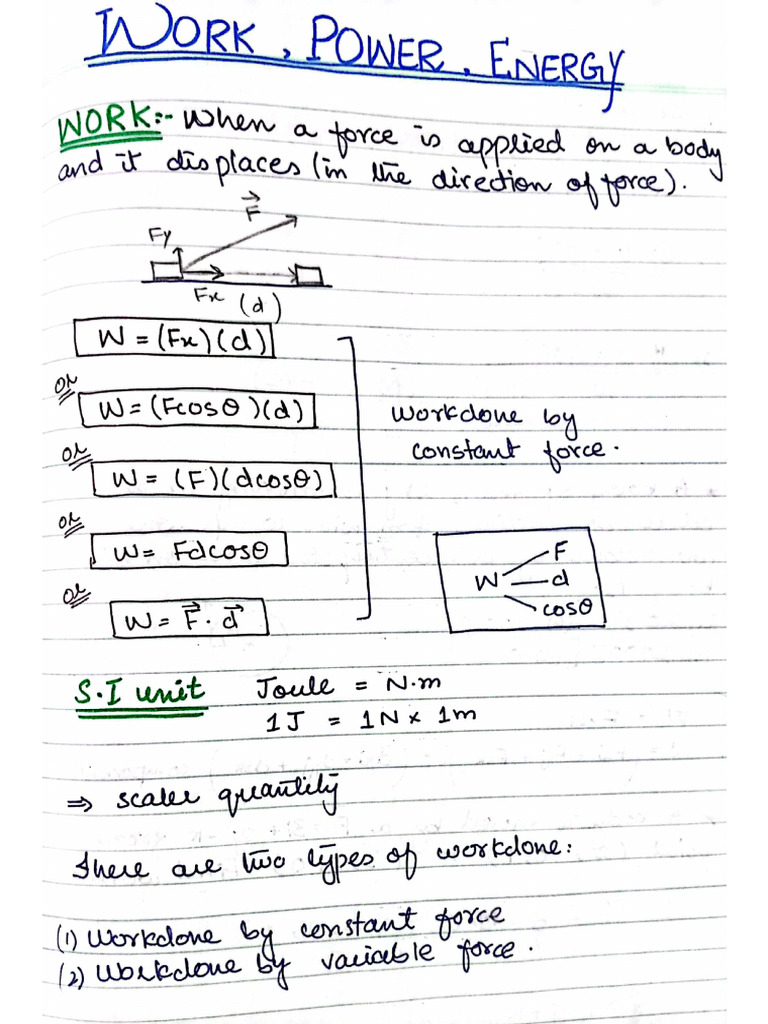 WORK, POWER, ENERGY
WORK:- When a force is applied on a body
and it displaces (in the direction of force).
F⃗
Fy
Fx (d)
W = (Fx)(d)
or
W = (Fcosθ)(d)
or
W = (F)(dcosθ)
or
W = Fdcosθ
or
W = F⃗ · d⃗
workdone by
constant force.
W F
d
cosθ
S.I unit Joule = N.m
1J = 1N × 1m
⇒ scaler quantity
There are two types of workdone:
(1) Workdone by constant force
(2) Workdone by variable force.